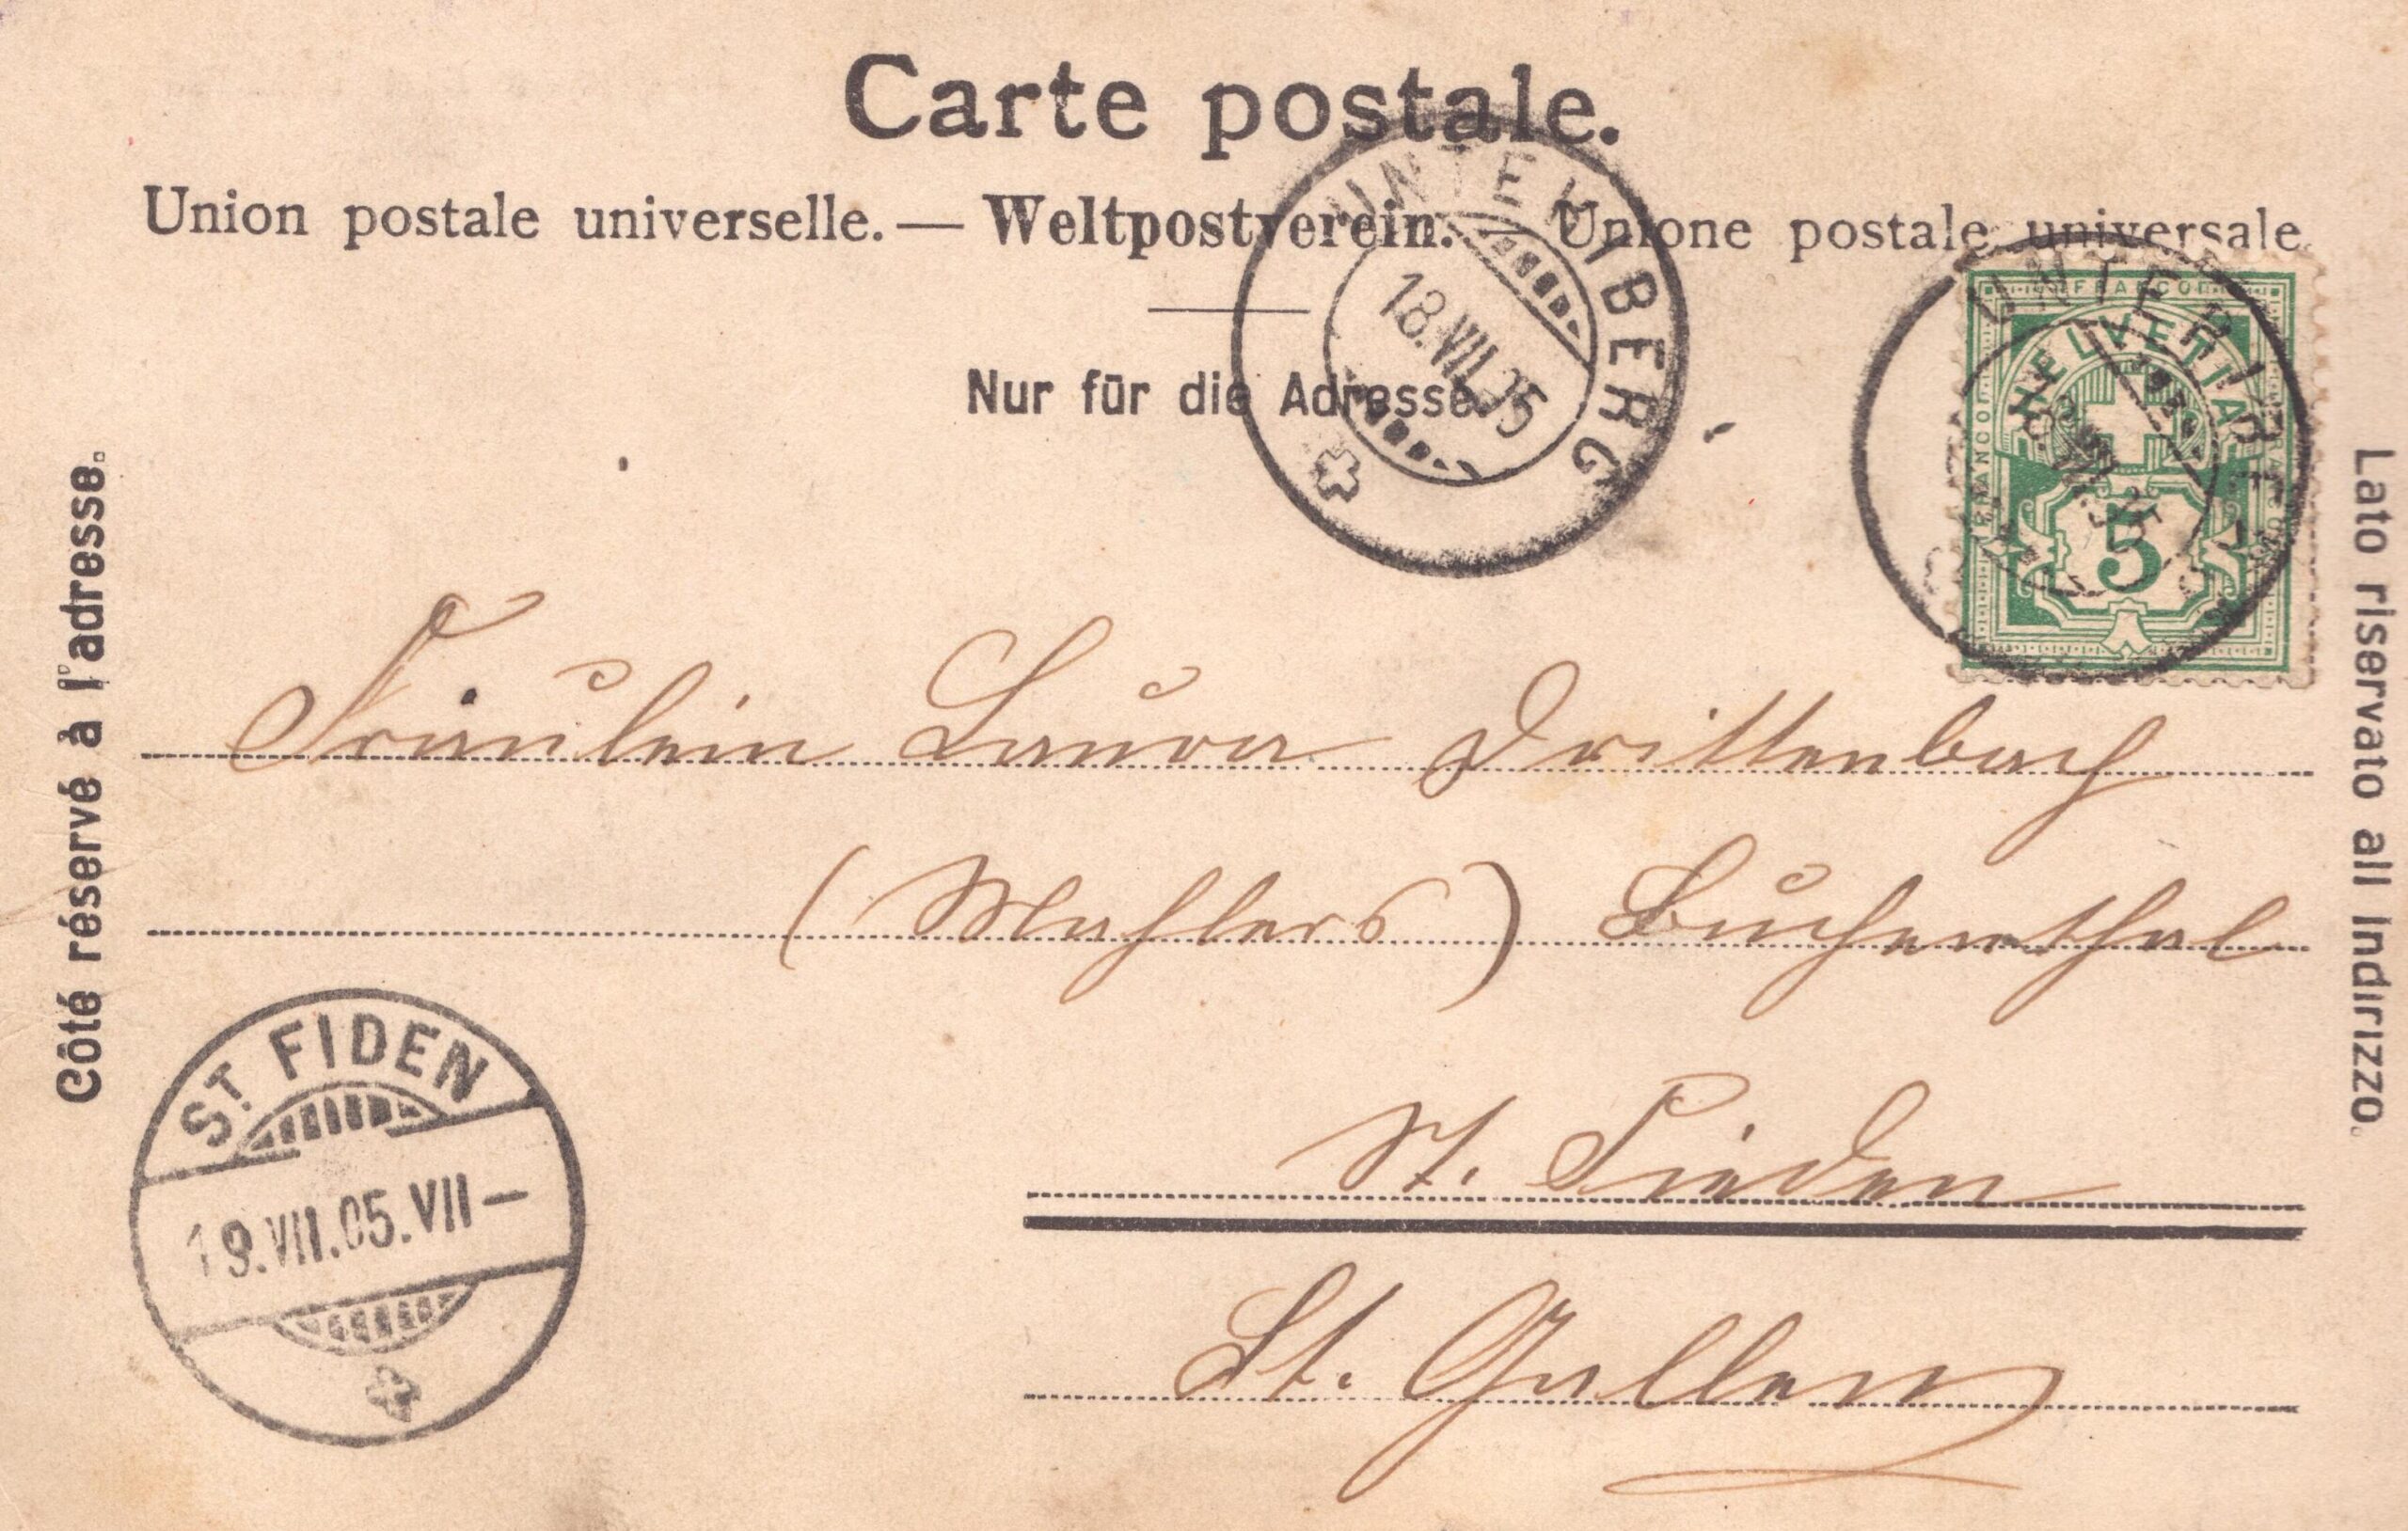 Carte postale.
Union postale universelle. — Weltpostverein. — Unione postale universale.
Nur für die Adresse.
Côté réservé à l'adresse.
Lato riservato all Indirizzo.
18.VII.05
FRANCO
HELVETIA
FRANCO
5
Fräulein Laura Drittenbach
(Mahlers) Buchenthal
St. Fieden
St. Gallen
ST. FIDEN
19.VII.05.VII—